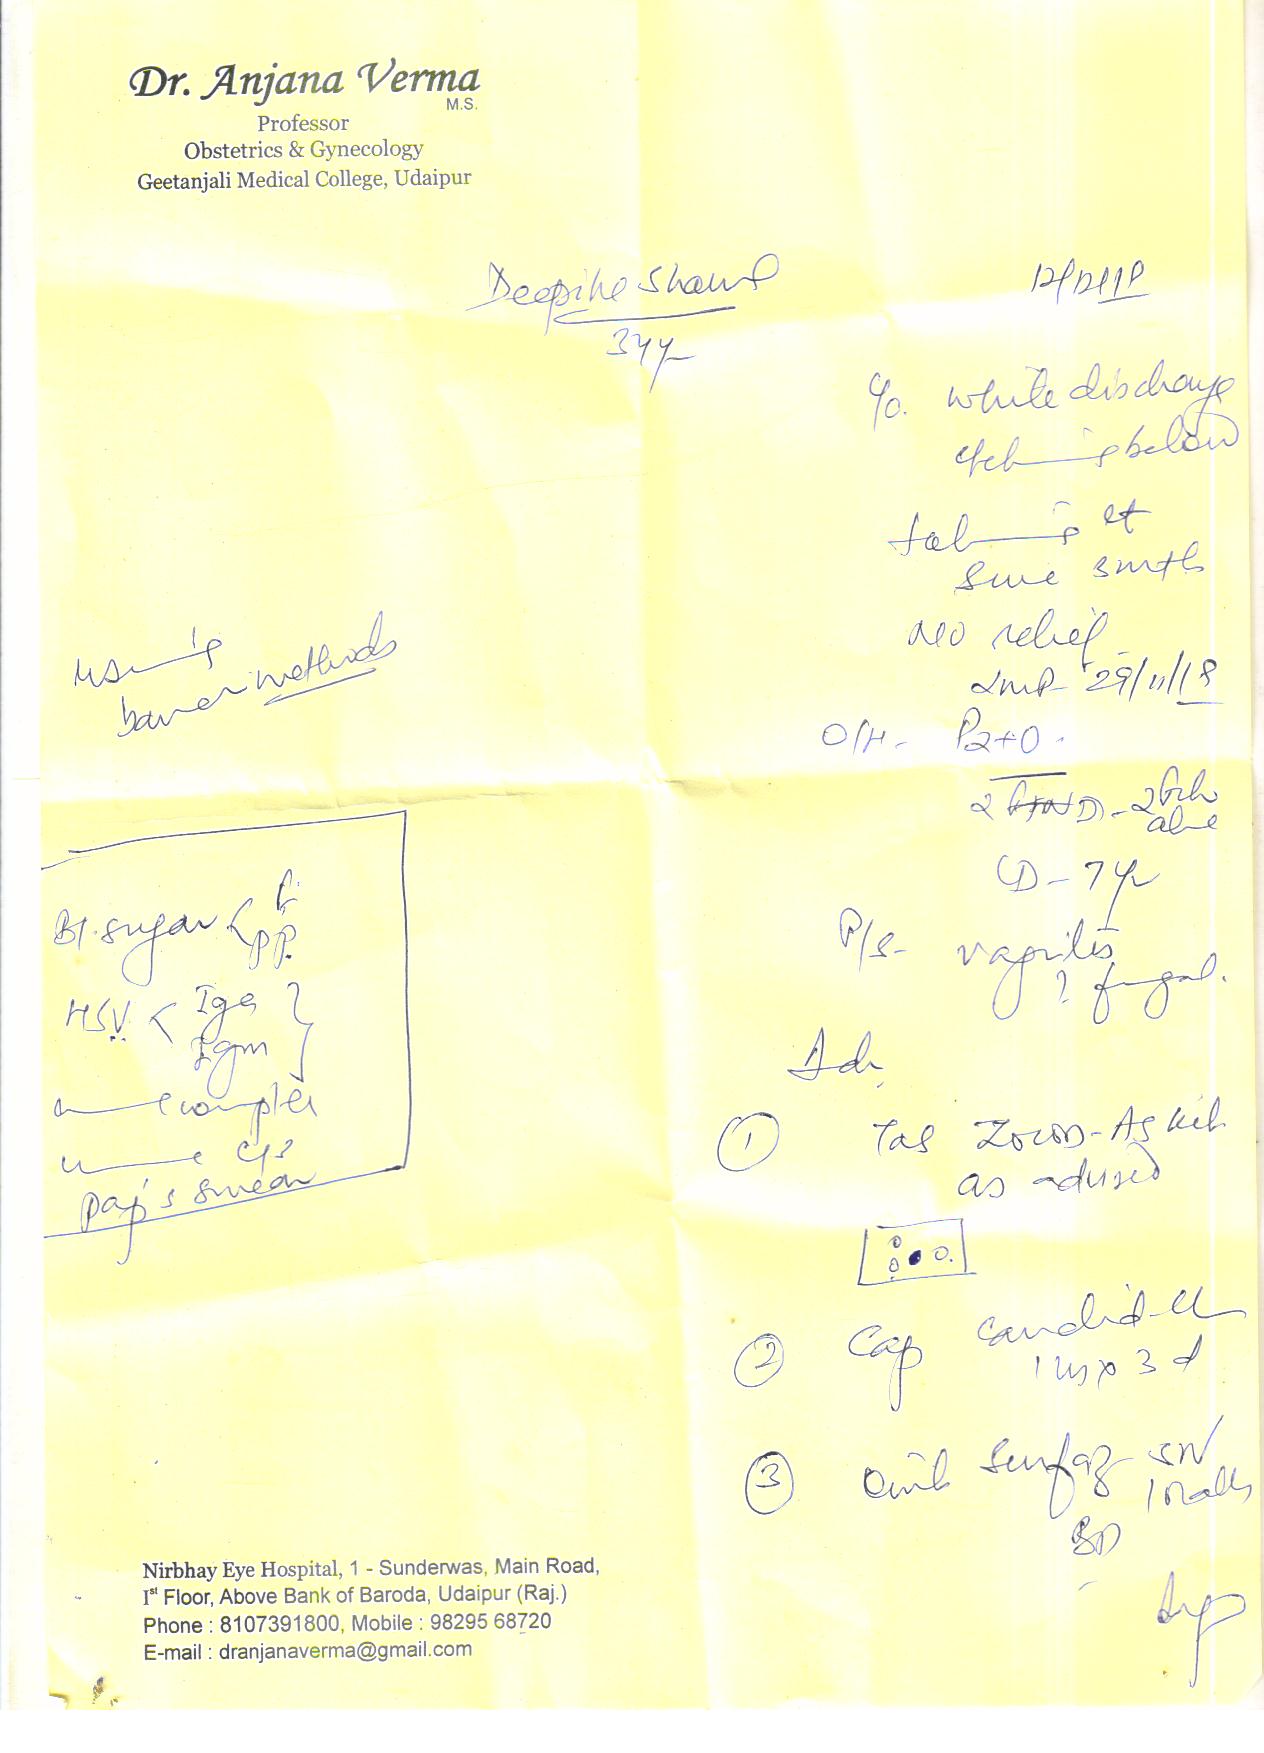 Dr. Anjana Verma
M.S.
Professor
Obstetrics & Gynecology
Geetanjali Medical College, Udaipur
34 yr
C/o. white discharge
itching below
taking
since 3 mth
no relief
LMP 29/11/18
O/H - P2+0
2 D - 2
alive
LD - 7 yr
P/S - vaginitis
? fungal.
Adv
using
barrier methods
Bl. sugar < F
PP.
HSV < IgG
IgM
urine complete
urine C/S
Pap's smear
1 Tab Zocon-AS Kit
as advised
2 Cap Candid-CL
1 HS x 3 d
3 Oint Surfaz-SN
locally
BD
Nirbhay Eye Hospital, 1 - Sunderwas, Main Road,
Ist Floor, Above Bank of Baroda, Udaipur (Raj.)
Phone : 8107391800, Mobile : 98295 68720
E-mail : dranjanaverma@gmail.com